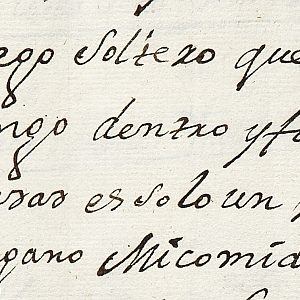 ego soltero que
ngo dentro y fu
rar es solo un
gano Micomid